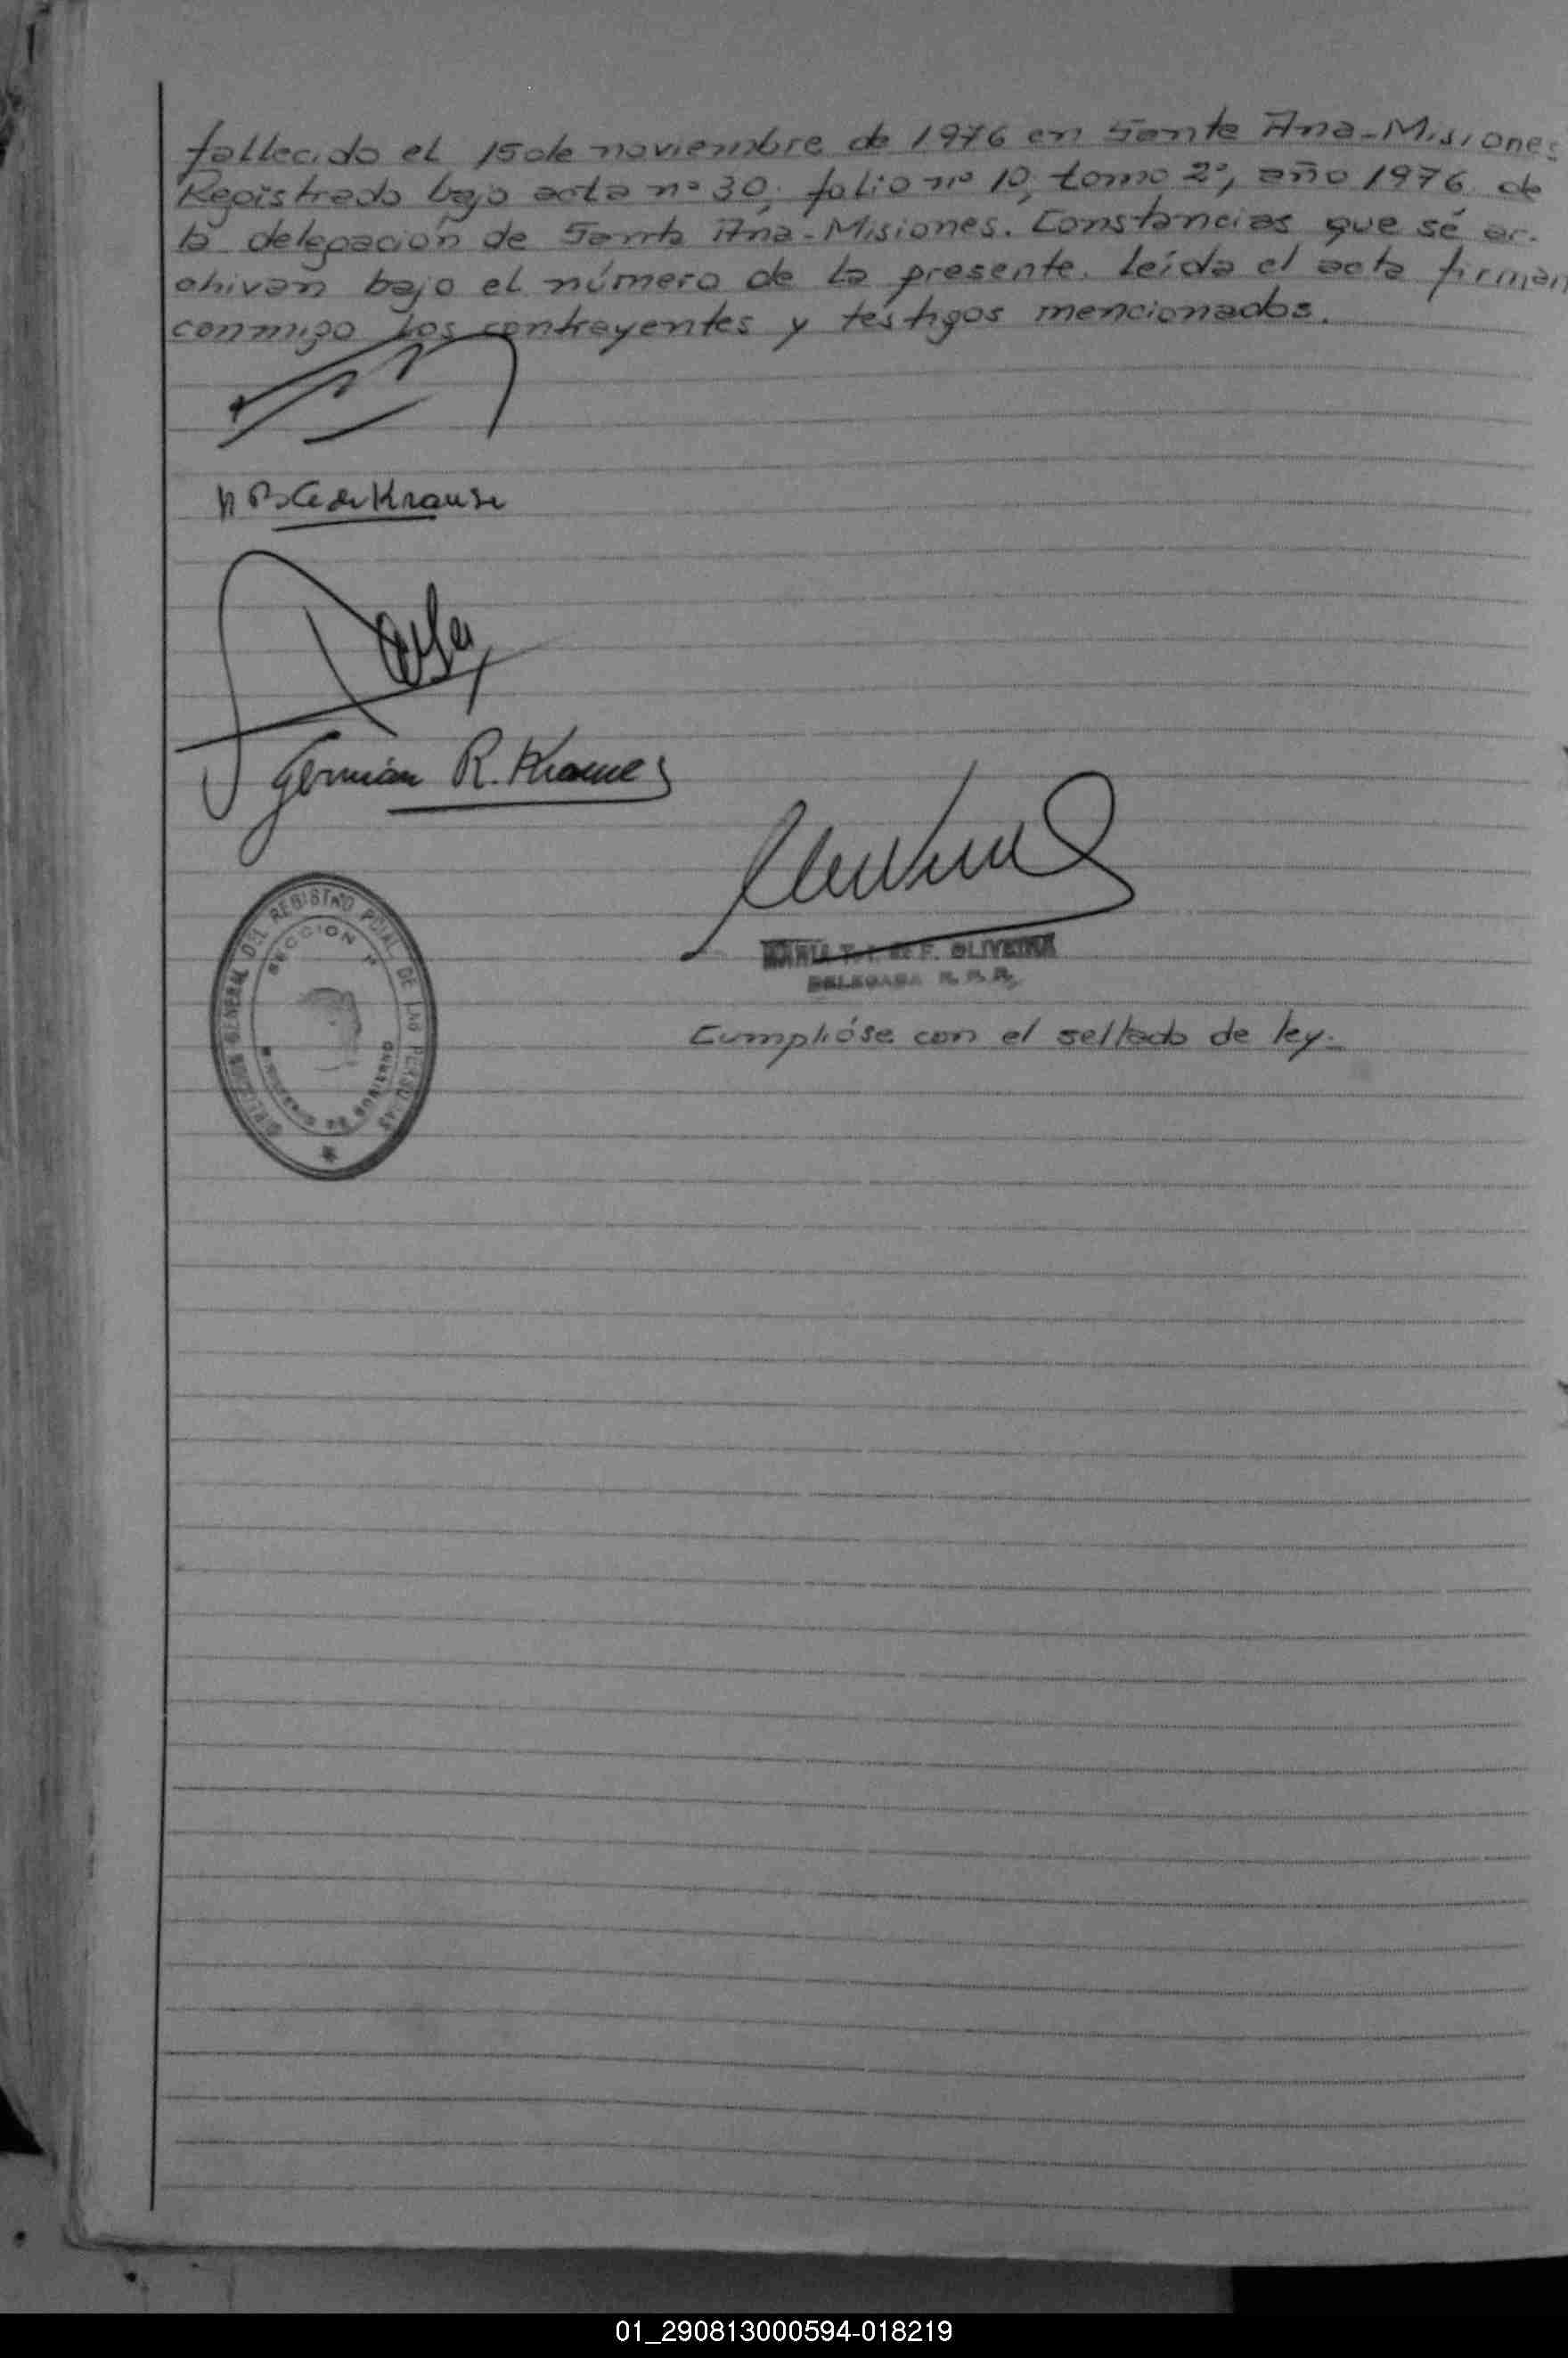 fallecido el 15 de noviembre de 1976 en Santa Ana-Misiones
Registrado bajo acta nº 30, folio nº 10, tomo 2º, año 1976 de
la delegación de Santa Ana-Misiones. Constancias que sé ar-
chivan bajo el número de la presente. leída el acta firman
conmigo los contrayentes y testigos mencionados.
de Krause
Germán R.
MARIA T. I. de F. OLIVEIRA
DELEGADA R. P. P.
DIRECCION GENERAL DEL REGISTRO PCIAL DE LAS PERSONAS
SECCION 1ª
MINISTERIO DE GOBIERNO
Cumplióse con el sellado de ley.-
01_290813000594-018219